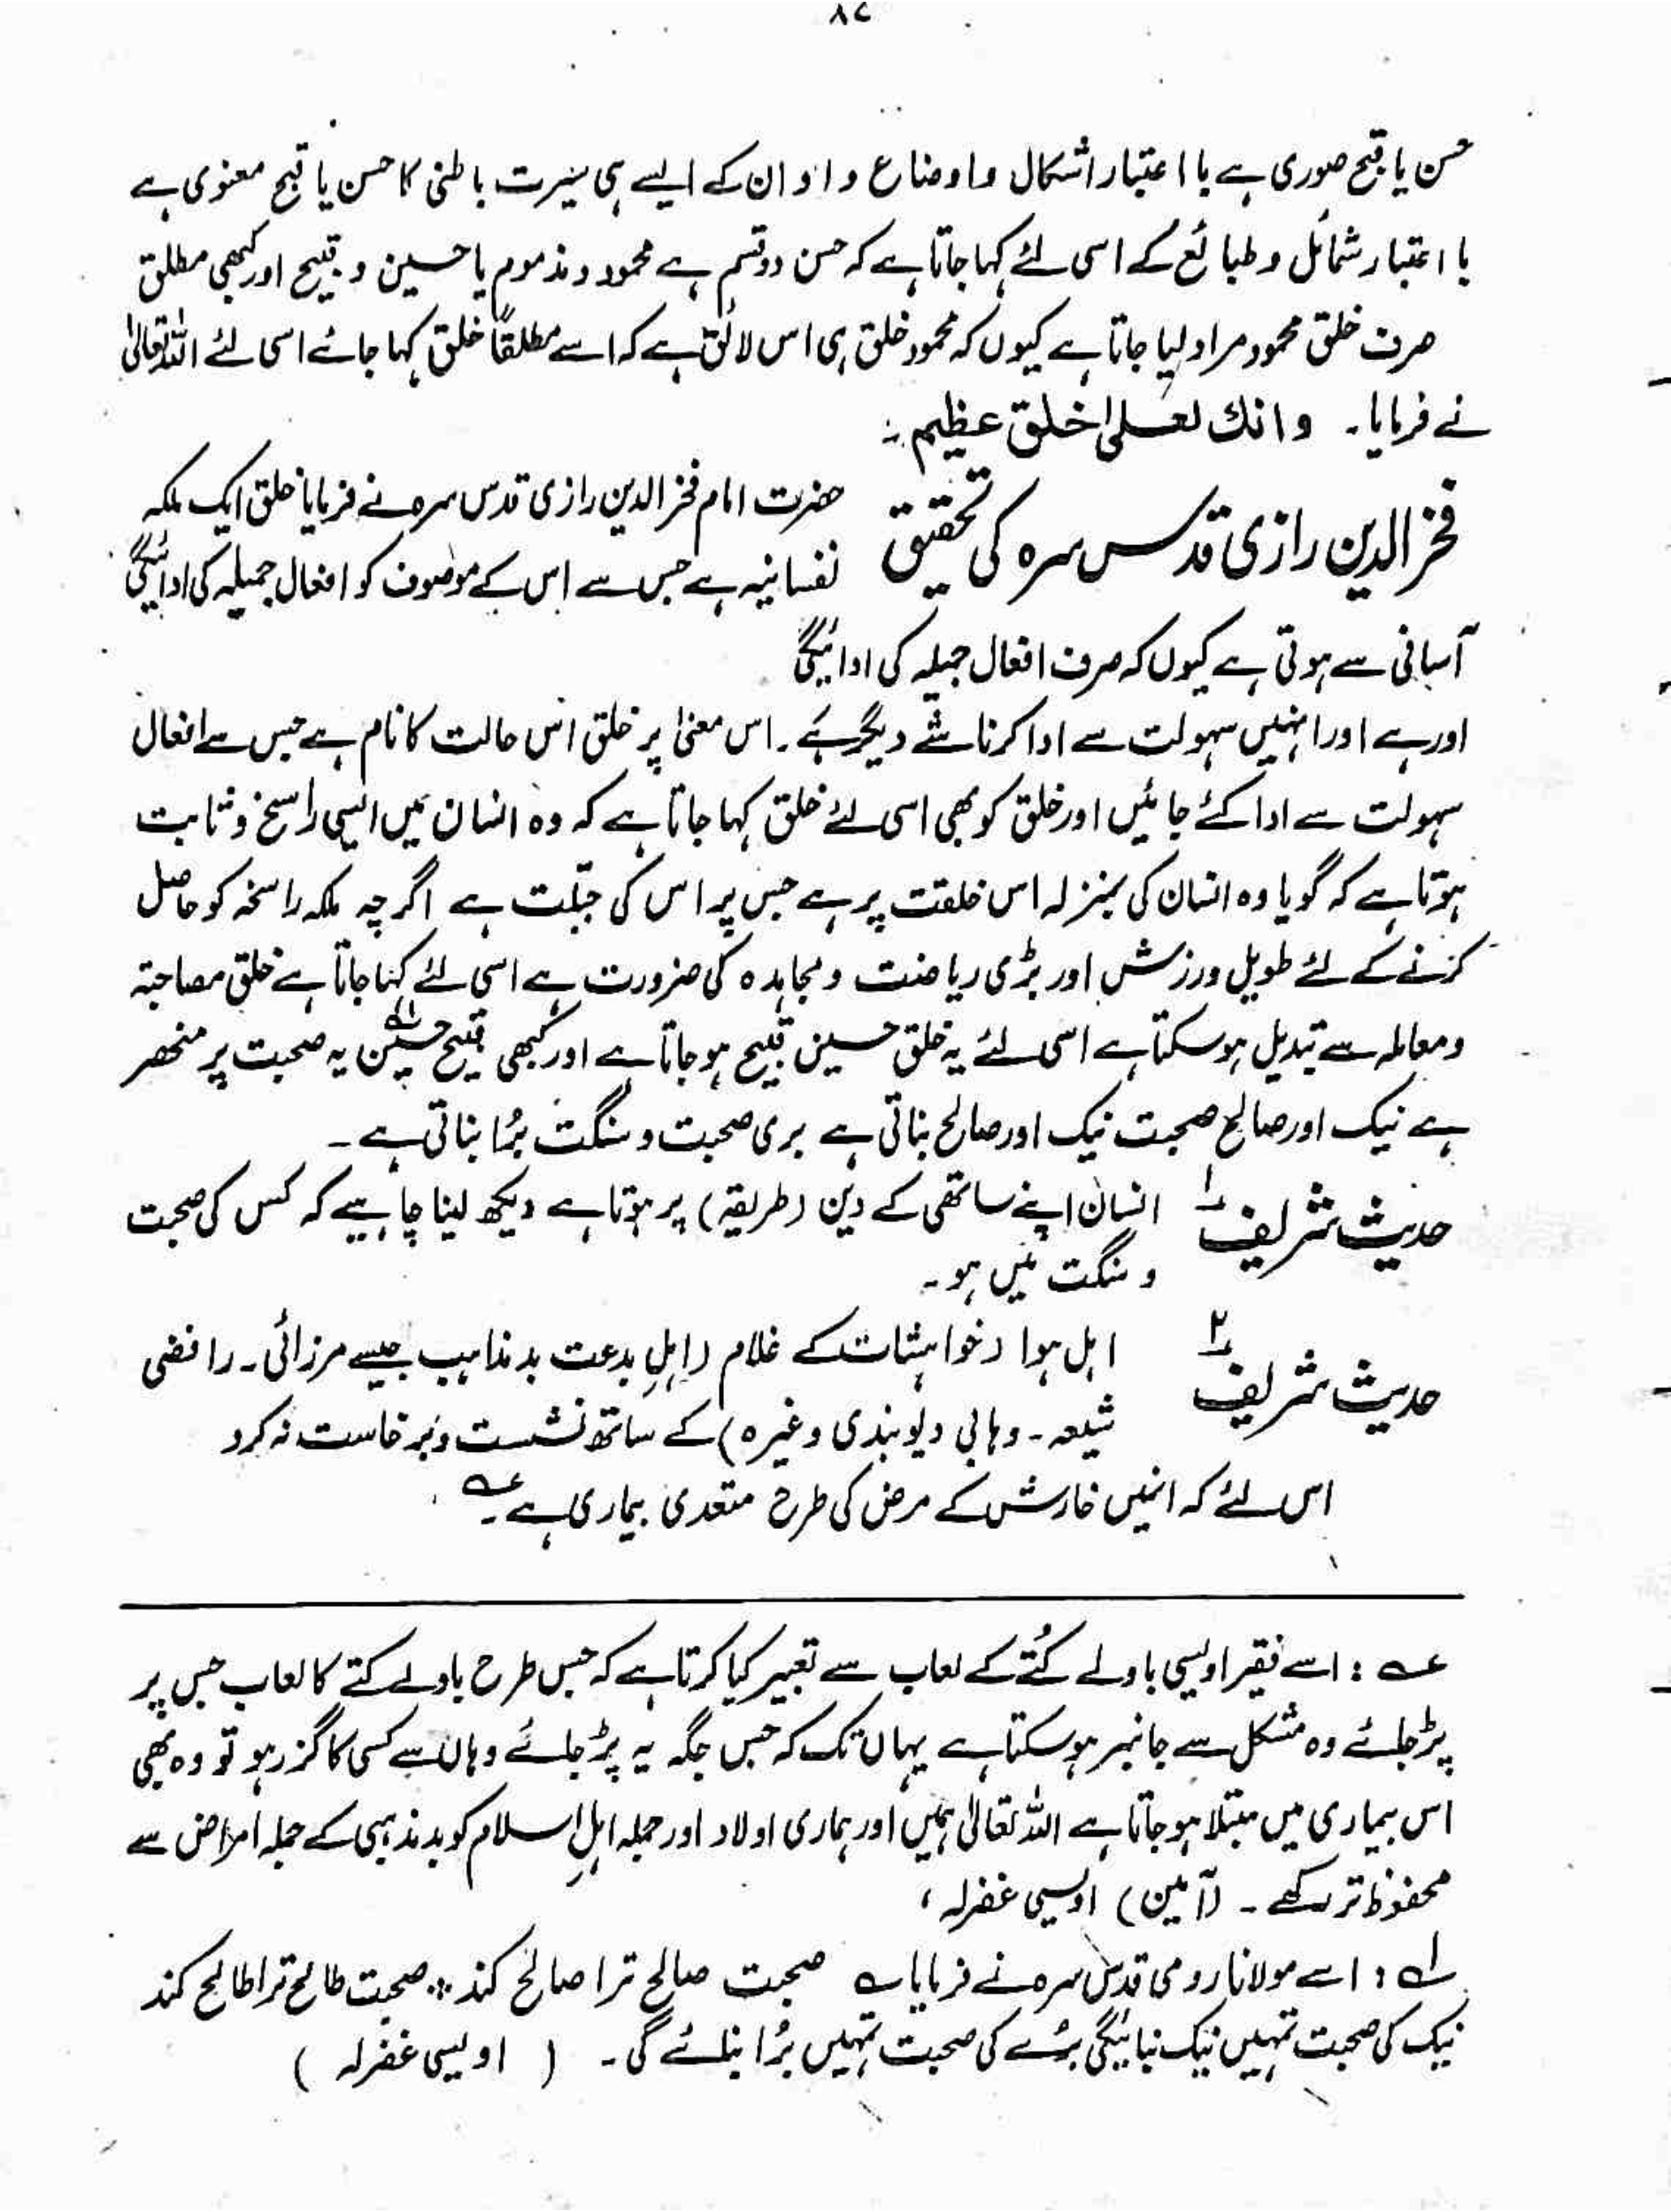 ۸۷
حسن یا قبح صوری ہے با اعتبار اشکال و اوضاع و اوان کے ایسے ہی سیرت باطنی کا حسن یا قبح معنوی ہے
با اعتبار شمائل و طبائع کے اسی لئے کہا جاتا ہے کہ حسن دو قسم ہے محمود و مذموم یا حسین و قبیح اور کبھی مطلق
صرف خلق محمود مراد لیا جاتا ہے کیوں کہ محمود خلق ہی اس لائق ہے کہ اسے مطلقاً خلق کہا جائے اسی لئے اللہ تعالیٰ
نے فرمایا۔ وانك لعلىٰ خلق عظيم۔
فخر الدین رازی قدس سرہ کی تحقیق
حضرت امام فخر الدین رازی قدس سرہ نے فرمایا خلق ایک ملکہ
نفسانیہ ہے جس سے اس کے موصوف کو افعال جمیلہ کی ادائیگی
آسانی سے ہوتی ہے کیوں کہ صرف افعال جمیلہ کی ادائیگی
اور ہے اور انہیں سہولت سے ادا کرنا شے دیگر ہے۔ اس معنیٰ پر خلق اس حالت کا نام ہے جس سے افعال
سہولت سے ادا کئے جائیں اور خلق کو بھی اسی لئے خلق کہا جاتا ہے کہ وہ انسان میں ایسی راسخ و ثابت
ہوتا ہے کہ گویا وہ انسان کی بمنزلہ اس خلقت پر ہے جس پر اس کی جبلت ہے اگرچہ ملکہ راسخہ کو حاصل
کرنے کے لئے طویل ورزش اور بڑی ریاضت و مجاہدہ کی ضرورت ہے اسی لئے کہا جاتا ہے خلق مصاحبۃ
و معاملہ سے تبدیل ہو سکتا ہے اسی لئے یہ خلق حسین قبیح ہو جاتا ہے اور کبھی قبیح حسین لہ یہ صحبت پر منحصر
ہے نیک اور صالح صحبت نیک اور صالح بناتی ہے بری صحبت و سنگت بُرا بناتی ہے۔
حدیث شریف ۱ انسان اپنے ساتھی کے دین (طریقہ) پر ہوتا ہے دیکھ لینا چاہیے کہ کس کی صحبت
و سنگت میں ہو۔
حدیث شریف ۲ اہل ہوا (خواہشات کے غلام (اہلِ بدعت بد مذاہب جیسے مرزائی۔ رافضی
شیعہ۔ وہابی دیوبندی وغیرہ) کے ساتھ نشست و برخاست نہ کرو
اس لئے کہ انہیں خارش کے مرض کی طرح متعدی بیماری ہے۔ عہ
عہ : اسے فقیر اویسی باولے کُتے کے لعاب سے تعبیر کیا کرتا ہے کہ جس طرح باولے کتے کا لعاب جس پر
پڑ جائے وہ مشکل سے جانبر ہو سکتا ہے یہاں تک کہ جس جگہ یہ پڑ جائے وہاں سے کسی کا گزر ہو تو وہ بھی
اس بیماری میں مبتلا ہو جاتا ہے اللہ تعالیٰ ہمیں اور ہماری اولاد اور جملہ اہلِ اسلام کو بد مذہبی کے جملہ امراض سے
محفوظ تر رکھے۔ (آمین) اویسی غفرلہ،
لہ : اسے مولانا رومی قدس سرہ نے فرمایا ؎ صحبت صالح ترا صالح کند ٭ صحبت طالح ترا طالح کند
نیک کی صحبت تمہیں نیک بنائیگی بُرے کی صحبت تمہیں بُرا بنائے گی۔ ( اویسی غفرلہ )